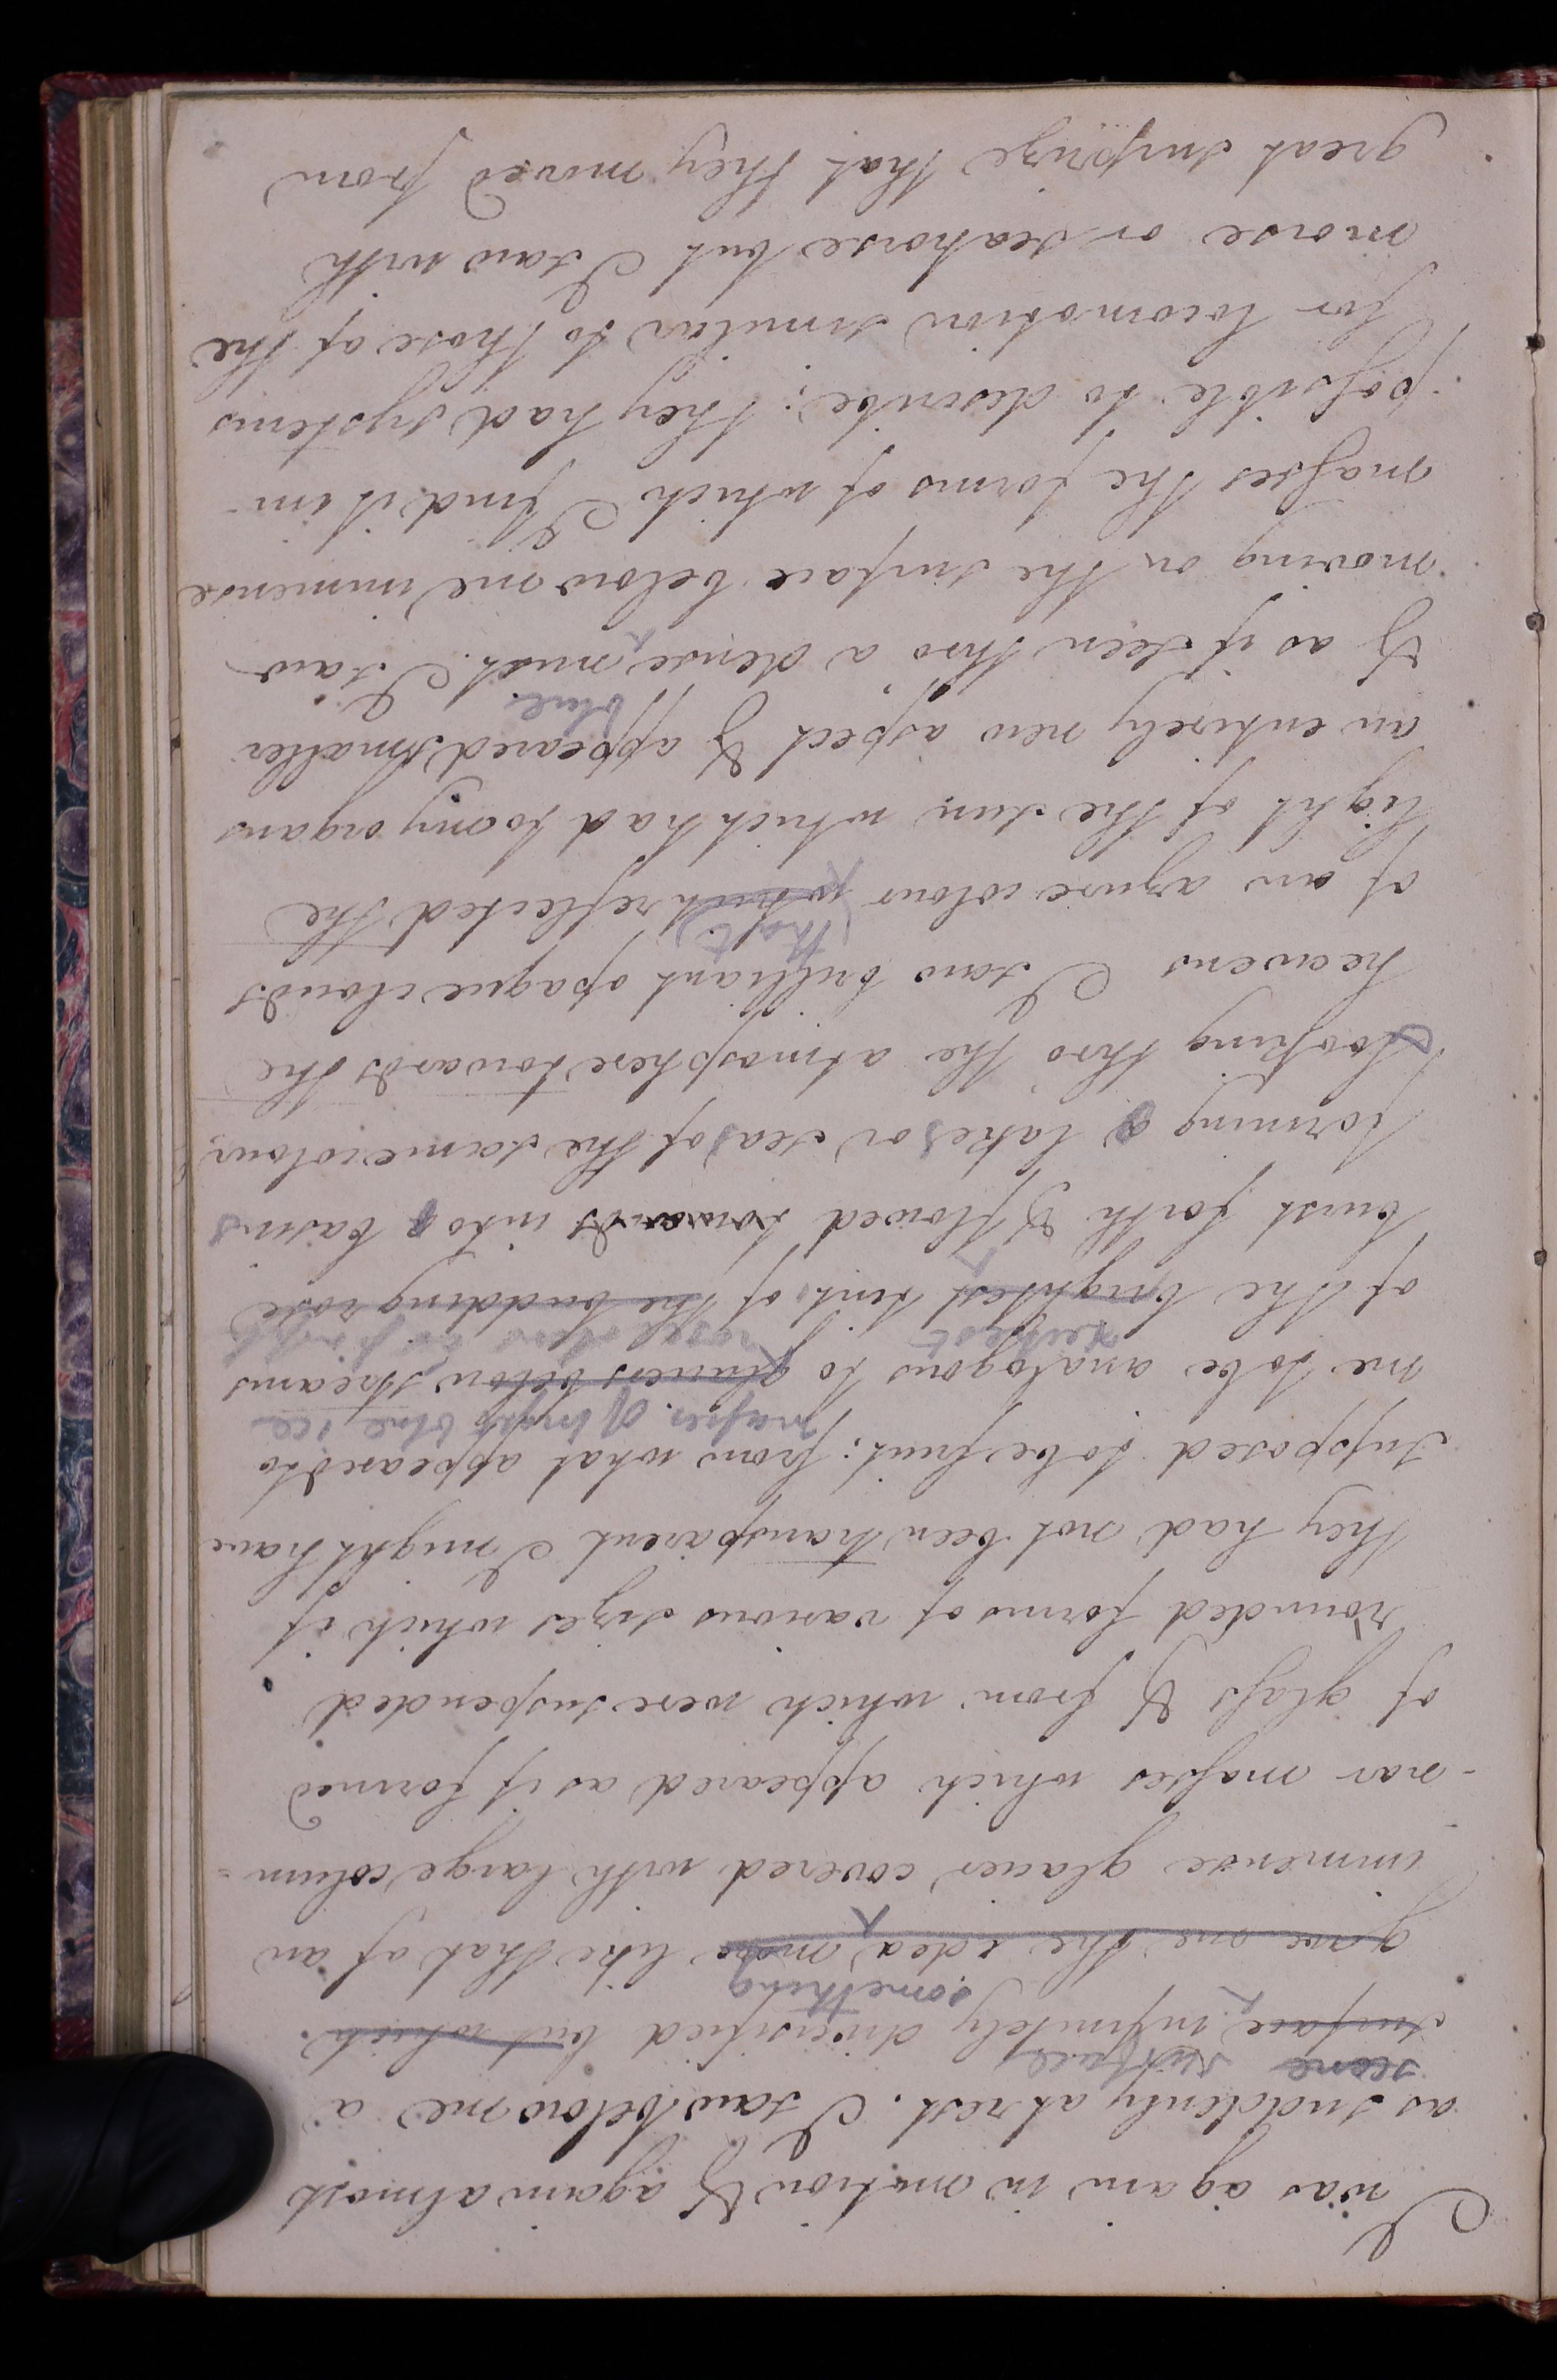 I was again in motion & again almost
as suddenly at rest. I saw below me a
scene surface
surface infinitely diversified but which
something
gave me the idea more like that of an
immense glacier covered with large colum-
-nar masses which appeared as if formed
of glass & from which were suspended
rounded forms of various sizes which if
they had not been transparent I might have
supposed to be fruit: from what appeared to
masses of bright blue ice
me to be analogous to glaciers below, streams
richest rose
of the brightest tint of the budding rose
burst forth & flowed towards into basins
forming lakes or seas of the same colour.
Looking thro the atmosphere towards the
heavens I saw brilliant opaque clouds
that
of an azure colour which reflected the
light of the sun which had to my organs
an entirely new aspect & appeared smaller
blue
& as if seen thro a dense mist. I saw
moving on the surface below me immense
masses the forms of which I find it im-
possible to describe; they had systems
for locomotion similar to those of the
morse or seahorse but I saw with
great surprize that they moved from